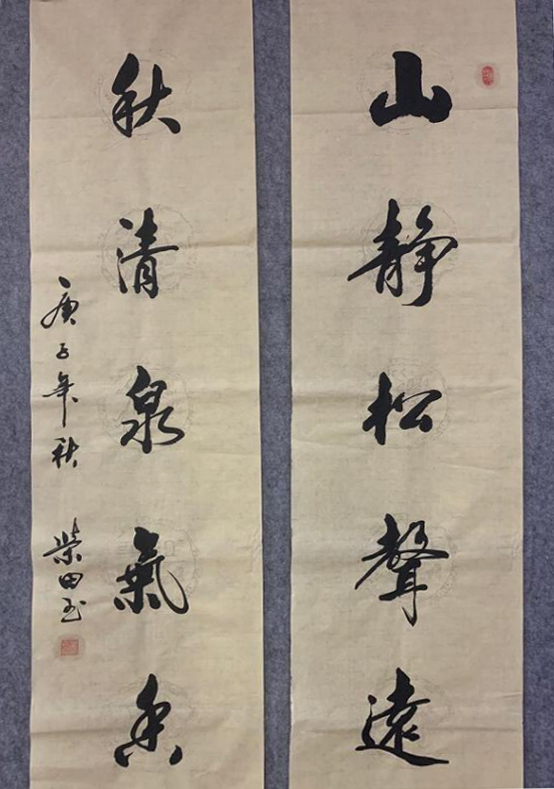 山靜松聲遠
秋清泉氣香
庚子年秋
柴田玉